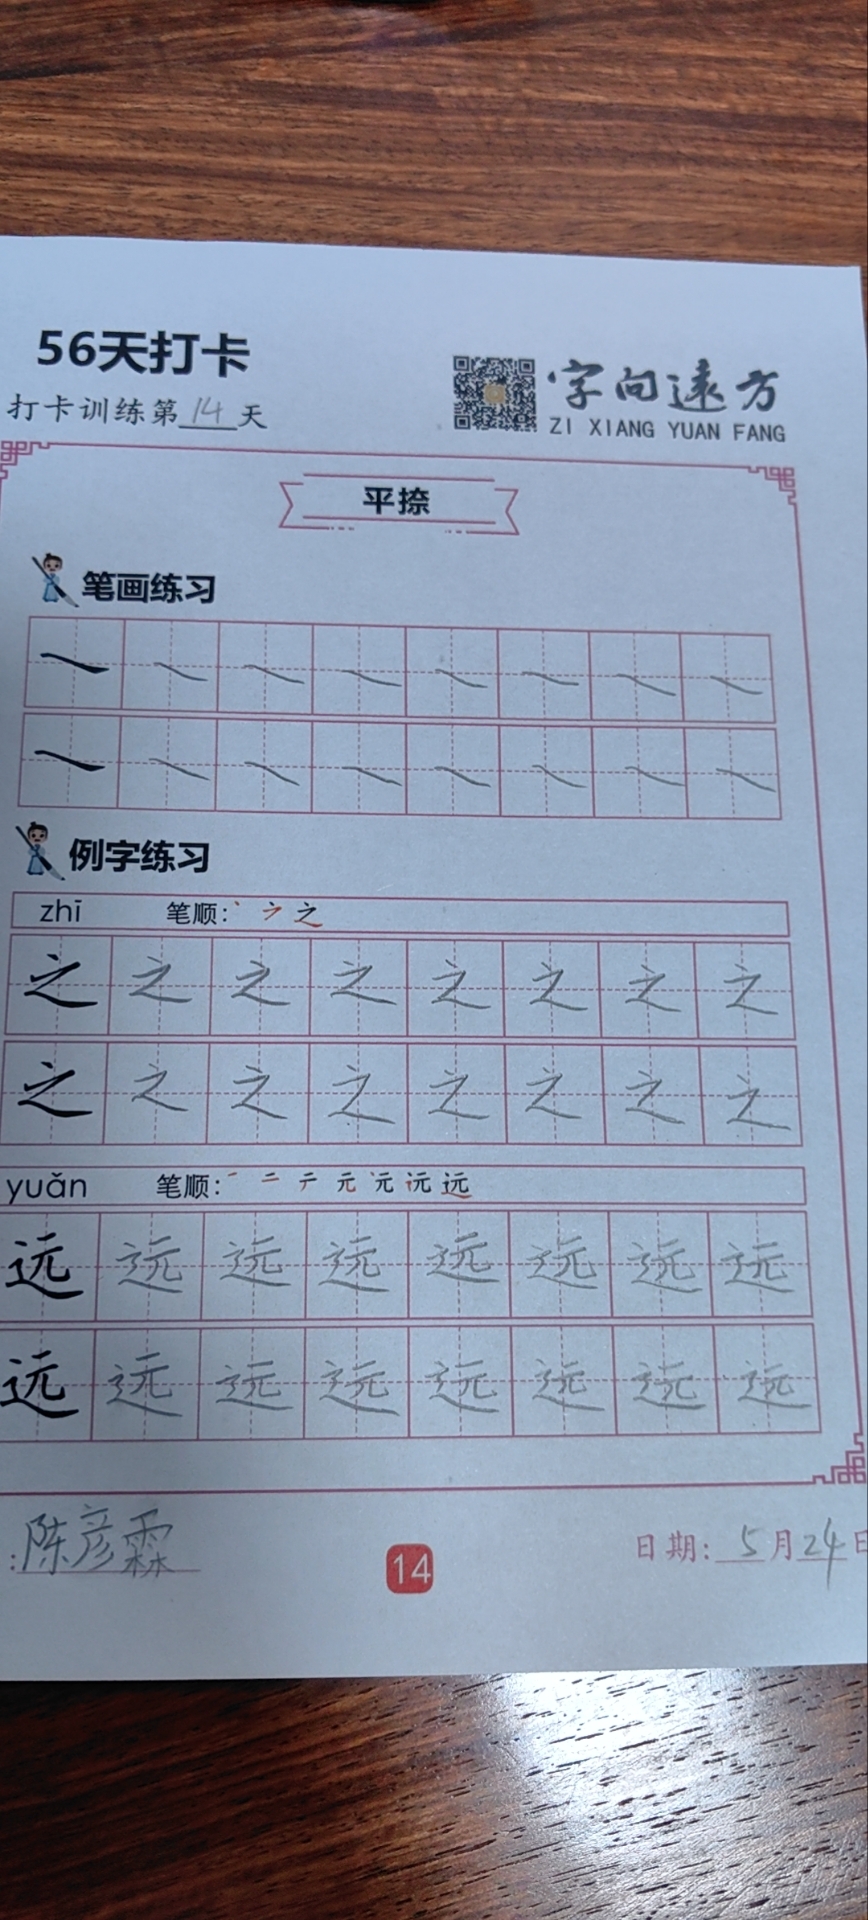 56天打卡
打卡训练第14天
字向遠方
ZI XIANG YUAN FANG
平捺
笔画练习
例字练习
zhī 笔顺:
之 之 之 之 之 之 之 之
之 之 之 之 之 之 之 之
yuǎn 笔顺: 一 二 テ 元 元 远 远
远 远 远 远 远 远 远 远
远 远 远 远 远 远 远 远
:陈彦霖
14
日期: 5月24日